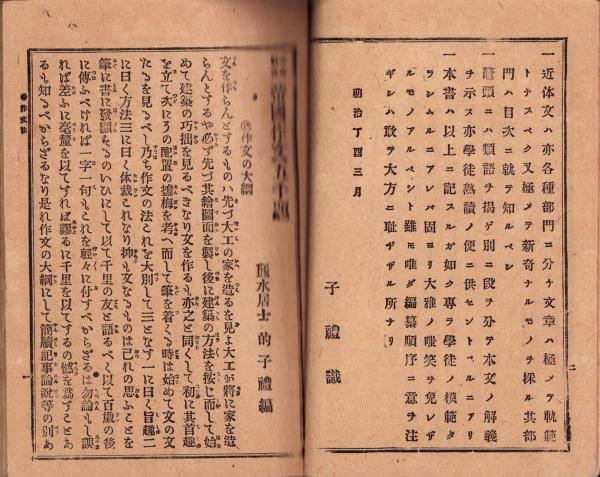 一近体文ハ亦各種部門ニ分ケ文章ハ極メテ軌範
トナスベク又極メテ新奇ナルモノヲ採ル其部
門ハ目次ニ就テ知ルベシ
一鼇頭ニハ類語ヲ掲ゲ別ニ段ヲ分テ本文ノ解義
ヲ示ス亦學徒熟讀ノ便ニ供セントスルニアリ
一本書ハ以上ニ記スルガ如ク専ラ學徒ノ模範タ
ラシムルニアレバ固ヨリ大雅ノ嗤笑ヲ免レザ
ルモノアルベシト雖モ唯ダ編纂順序ニ意ヲ注
ギシハ敢テ大方ニ耻ヂザル所ナリ
明治丁四三月
子禮識
二
五千題
麗水居士 的子禮編
◎作文の大綱
文を作らんとするものハ先づ大工の家を造るを見よ大工が將に家を造
らんとするや必ず先づ其繪圖面を製し後に建築の方法を按じ而して始
めて建築の巧拙を見るべきなり文を作るも亦之と同くして初に其首趣
を立て次にろの配置の塩梅を考へ而して筆を着くる時は始めて文の文
たるを見るべし乃ち作文の法これを大別して三となす一に曰く旨趣二
に曰く方法三に曰く体裁これなり抑も文なるものは己れの思ふことを
筆に書に發顕するのいひにして以て千里の友と語るべく以て百歳の後
に傳ふべければ一字一句もこれを輕々に付すべからざるは勿論もし誤
れば差ふに毫釐を以てすれば謬るに千里を以てするの憾を爲すことあ
るも知るべからざるなり是れ作文の大綱にして簡牘記事論説等の別あ
◎作文法
一